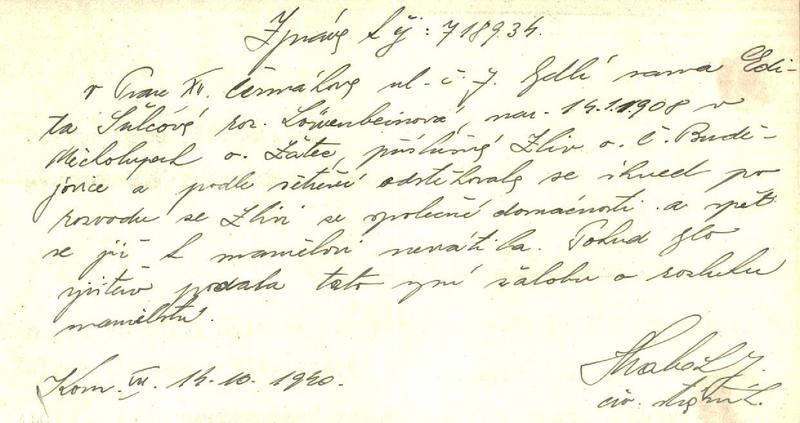 Zpráva k čj: 718934.
v Praze XII. Čermákova ul. č. 7. bydlí sama Edi-
ta Šulcová roz. Löwenbeinová, nar. 14.1.1908 v
Měcholupech o. Žatec, příslušná Zliv o. Č. Budě-
jovice a podle šetření odstěhovala se ihned po
rozvodu ze Zlivi ze společné domácnosti a zpět
se již k manželovi nevrátila. Pokud zjištěno
podala tato nyní žalobu o rozluku
manželství.
Kom. XII. 14.10.1940.
civ. stráž.